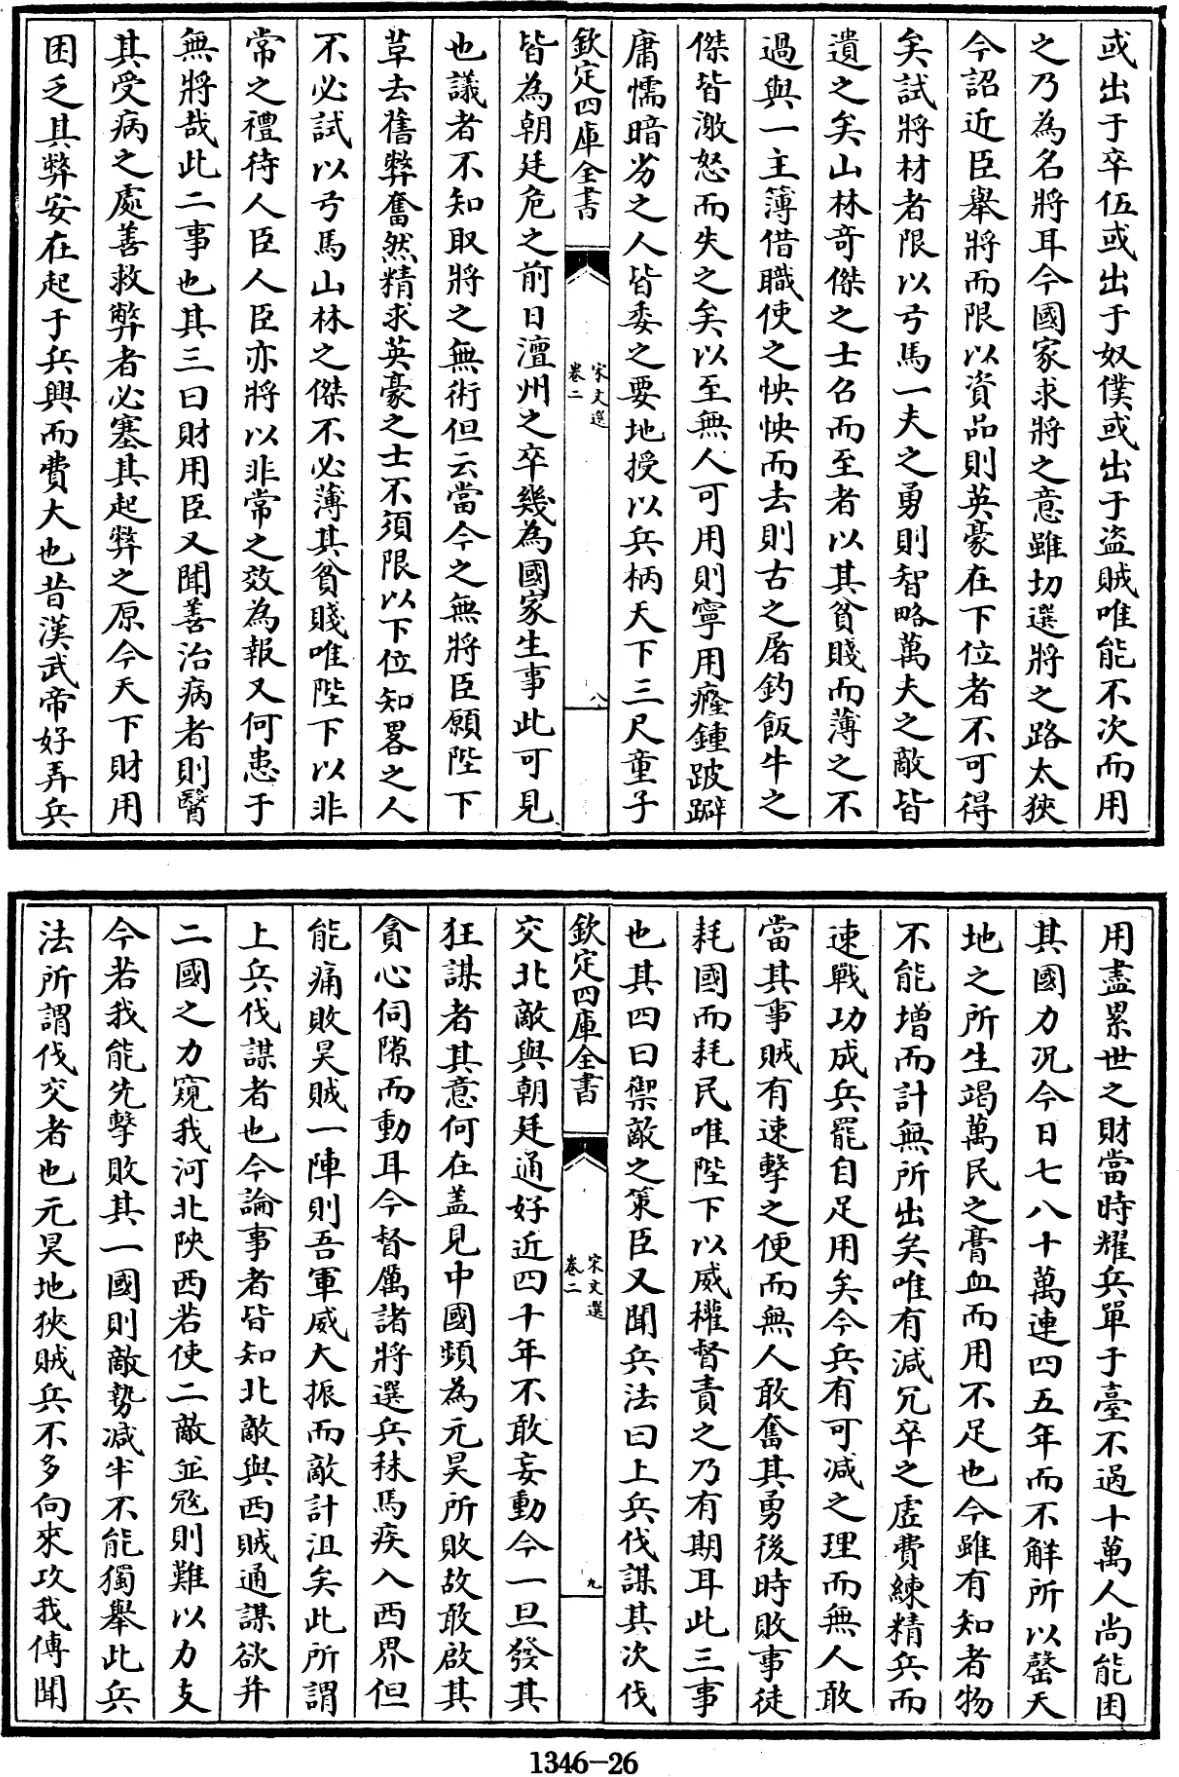 或出于卒伍或出于奴僕或出于盗賊唯能不次而用
之乃為名將耳今國家求將之意雖切選將之路太狹
今詔近臣舉將而限以資品則英豪在下位者不可得
矣試將材者限以弓馬一夫之勇則智略萬夫之敵皆
遺之矣山林奇傑之士召而至者以其貧賤而薄之不
過與一主簿借職使之怏怏而去則古之屠釣飯牛之
傑皆激怒而失之矣以至無人可用則寧用癃鍾跛躃
庸懦暗劣之人皆委之要地授以兵柄天下三尺童子
欽定四庫全書
宋文選
卷二
八
皆為朝廷危之前日澶州之卒幾為國家生事此可見
也議者不知取將之無術但云當今之無將臣願陛下
草去舊弊奮然精求英豪之士不須限以下位知畧之人
不必試以弓馬山林之傑不必薄其貧賤唯陛下以非
常之禮待人臣人臣亦將以非常之效為報又何患于
無將哉此二事也其三曰財用臣又聞善治病者則醫
其受病之處善救弊者必塞其起弊之原今天下財用
困乏其弊安在起于兵興而費大也昔漢武帝好弄兵
用盡累世之財當時耀兵單于臺不過十萬人尚能困
其國力況今日七八十萬連四五年而不解所以罄天
地之所生竭萬民之膏血而用不足也今雖有知者物
不能增而計無所出矣唯有減冗卒之虛費練精兵而
速戰功成兵罷自足用矣今兵有可減之理而無人敢
當其事賊有速擊之便而無人敢奮其勇後時敗事徒
耗國而耗民唯陛下以威權督責之乃有期耳此三事
也其四曰禦敵之策臣又聞兵法曰上兵伐謀其次伐
欽定四庫全書
宋文選
卷二
九
交北敵與朝廷通好近四十年不敢妄動今一旦發其
狂謀者其意何在盖見中國頻為元昊所敗故敢啟其
貪心伺隙而動耳今督厲諸將選兵秣馬疾入西界但
能痛敗昊賊一陣則吾軍威大振而敵計沮矣此所謂
上兵伐謀者也今論事者皆知北敵與西賊通謀欲并
二國之力窺我河北陝西若使二敵並宼則難以力支
今若我能先擊敗其一國則敵勢減半不能獨舉此兵
法所謂伐交者也元昊地狹賊兵不多向來攻我傳聞
1346-26